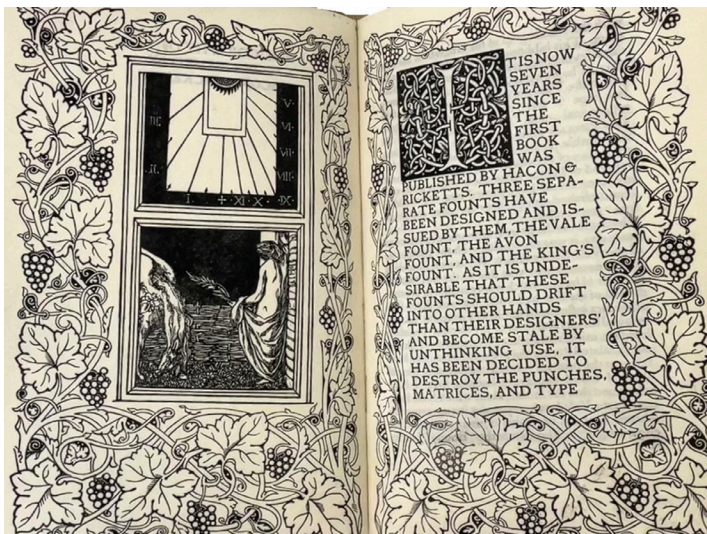 IIC
II
V
VI
VII
VIII
I + XI X IX
ITISNOW
SEVEN
YEARS
SINCE
THE
FIRST
BOOK
WAS
PUBLISHED BY HACON &
RICKETTS. THREE SEPA-
RATE FOUNTS HAVE
BEEN DESIGNED AND IS-
SUED BY THEM, THE VALE
FOUNT, THE AVON
FOUNT, AND THE KING'S
FOUNT. AS IT IS UNDE-
SIRABLE THAT THESE
FOUNTS SHOULD DRIFT
INTO OTHER HANDS
THAN THEIR DESIGNERS'
AND BECOME STALE BY
UNTHINKING USE, IT
HAS BEEN DECIDED TO
DESTROY THE PUNCHES,
MATRICES, AND TYPE